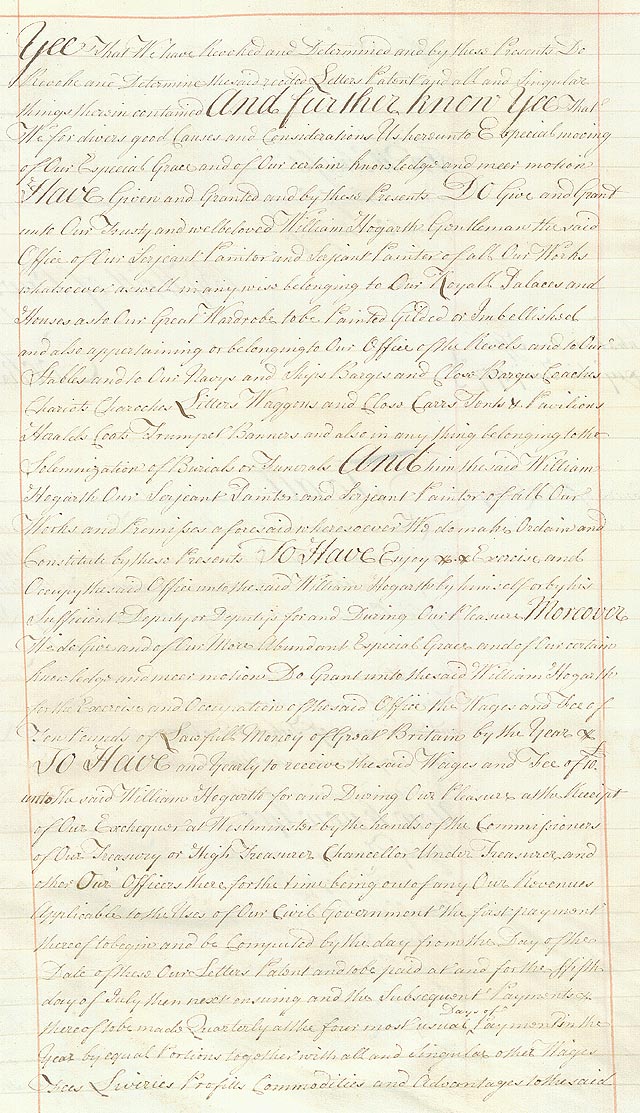 Yee That We have Revoked and Determined and by these Presents Do
Revoke and Determine the said recited Letters Patent and all and Singular
things therein contained And further know Yee That
We for divers good Causes and Considerations Us hereunto Especial moving
of Our Especial Grace and of Our certain knowledge and meer motion
Have Given and Granted and by these Presents Do Give and Grant
unto Our Trusty and welbeloved William Hogarth Gentleman the said
Office of Our Serjeant Painter and Serjeant Painter of all Our Works
whatsoever as well in any wise belonging to Our Royall Palaces and
Houses as to Our Great Wardrobe to be Painted Gilded or Imbellished
and also appertaining or belonging to Our Office of the Revels and to Our
Stables and to Our Navys and Ships Barges and Close Barges Coaches
Chariots Charoches Litters Waggons and Close Carrs Tents & Pavilions
Heralds Coats Trumpet Banners and also in any thing belonging to the
Solemnization of Burials or Funerals And him the said William
Hogarth Our Serjeant Painter and Serjeant Painter of all Our
Works and Premisses aforesaid wheresoever We do make Ordain and
Constitute by these Presents To Have Enjoy & Exercise and
Occupy the said Office unto the said William Hogarth by himself or by his
Sufficient Deputy or Deputys for and During Our Pleasure Moreover
We do Give and of Our More Abundant Especial Grace and of Our certain
knowledge and meer motion Do Grant unto the said William Hogarth
for the Exercise and Occupation of the said Office the Wages and Fee of
Ten Pounds of Lawfull Money of Great Britain by the Year &
To Have and Yearly to receive the said Wages and Fee of
unto the said William Hogarth for and During Our Pleasure at the Receipt
of Our Exchequer at Westminster by the hands of the Commissioners
of Our Treasury or High Treasurer Chancellor Under Treasurer and
other Our Officers there for the time being out of any Our Revenues
Applicable to the Uses of Our Civil Government the first payment
thereof to begin and be Computed by the day from the Day of the
Date of these Our Letters Patent and to be paid at and for the ffifth
day of July then next ensuing and the Subsequent Payments &
thereof to be made Quarterly at the four most usual Days of Payment in the
Year by equal Portions together with all and Singular other Wages
Fees Liveries Profitts Commodities and Advantages to the said